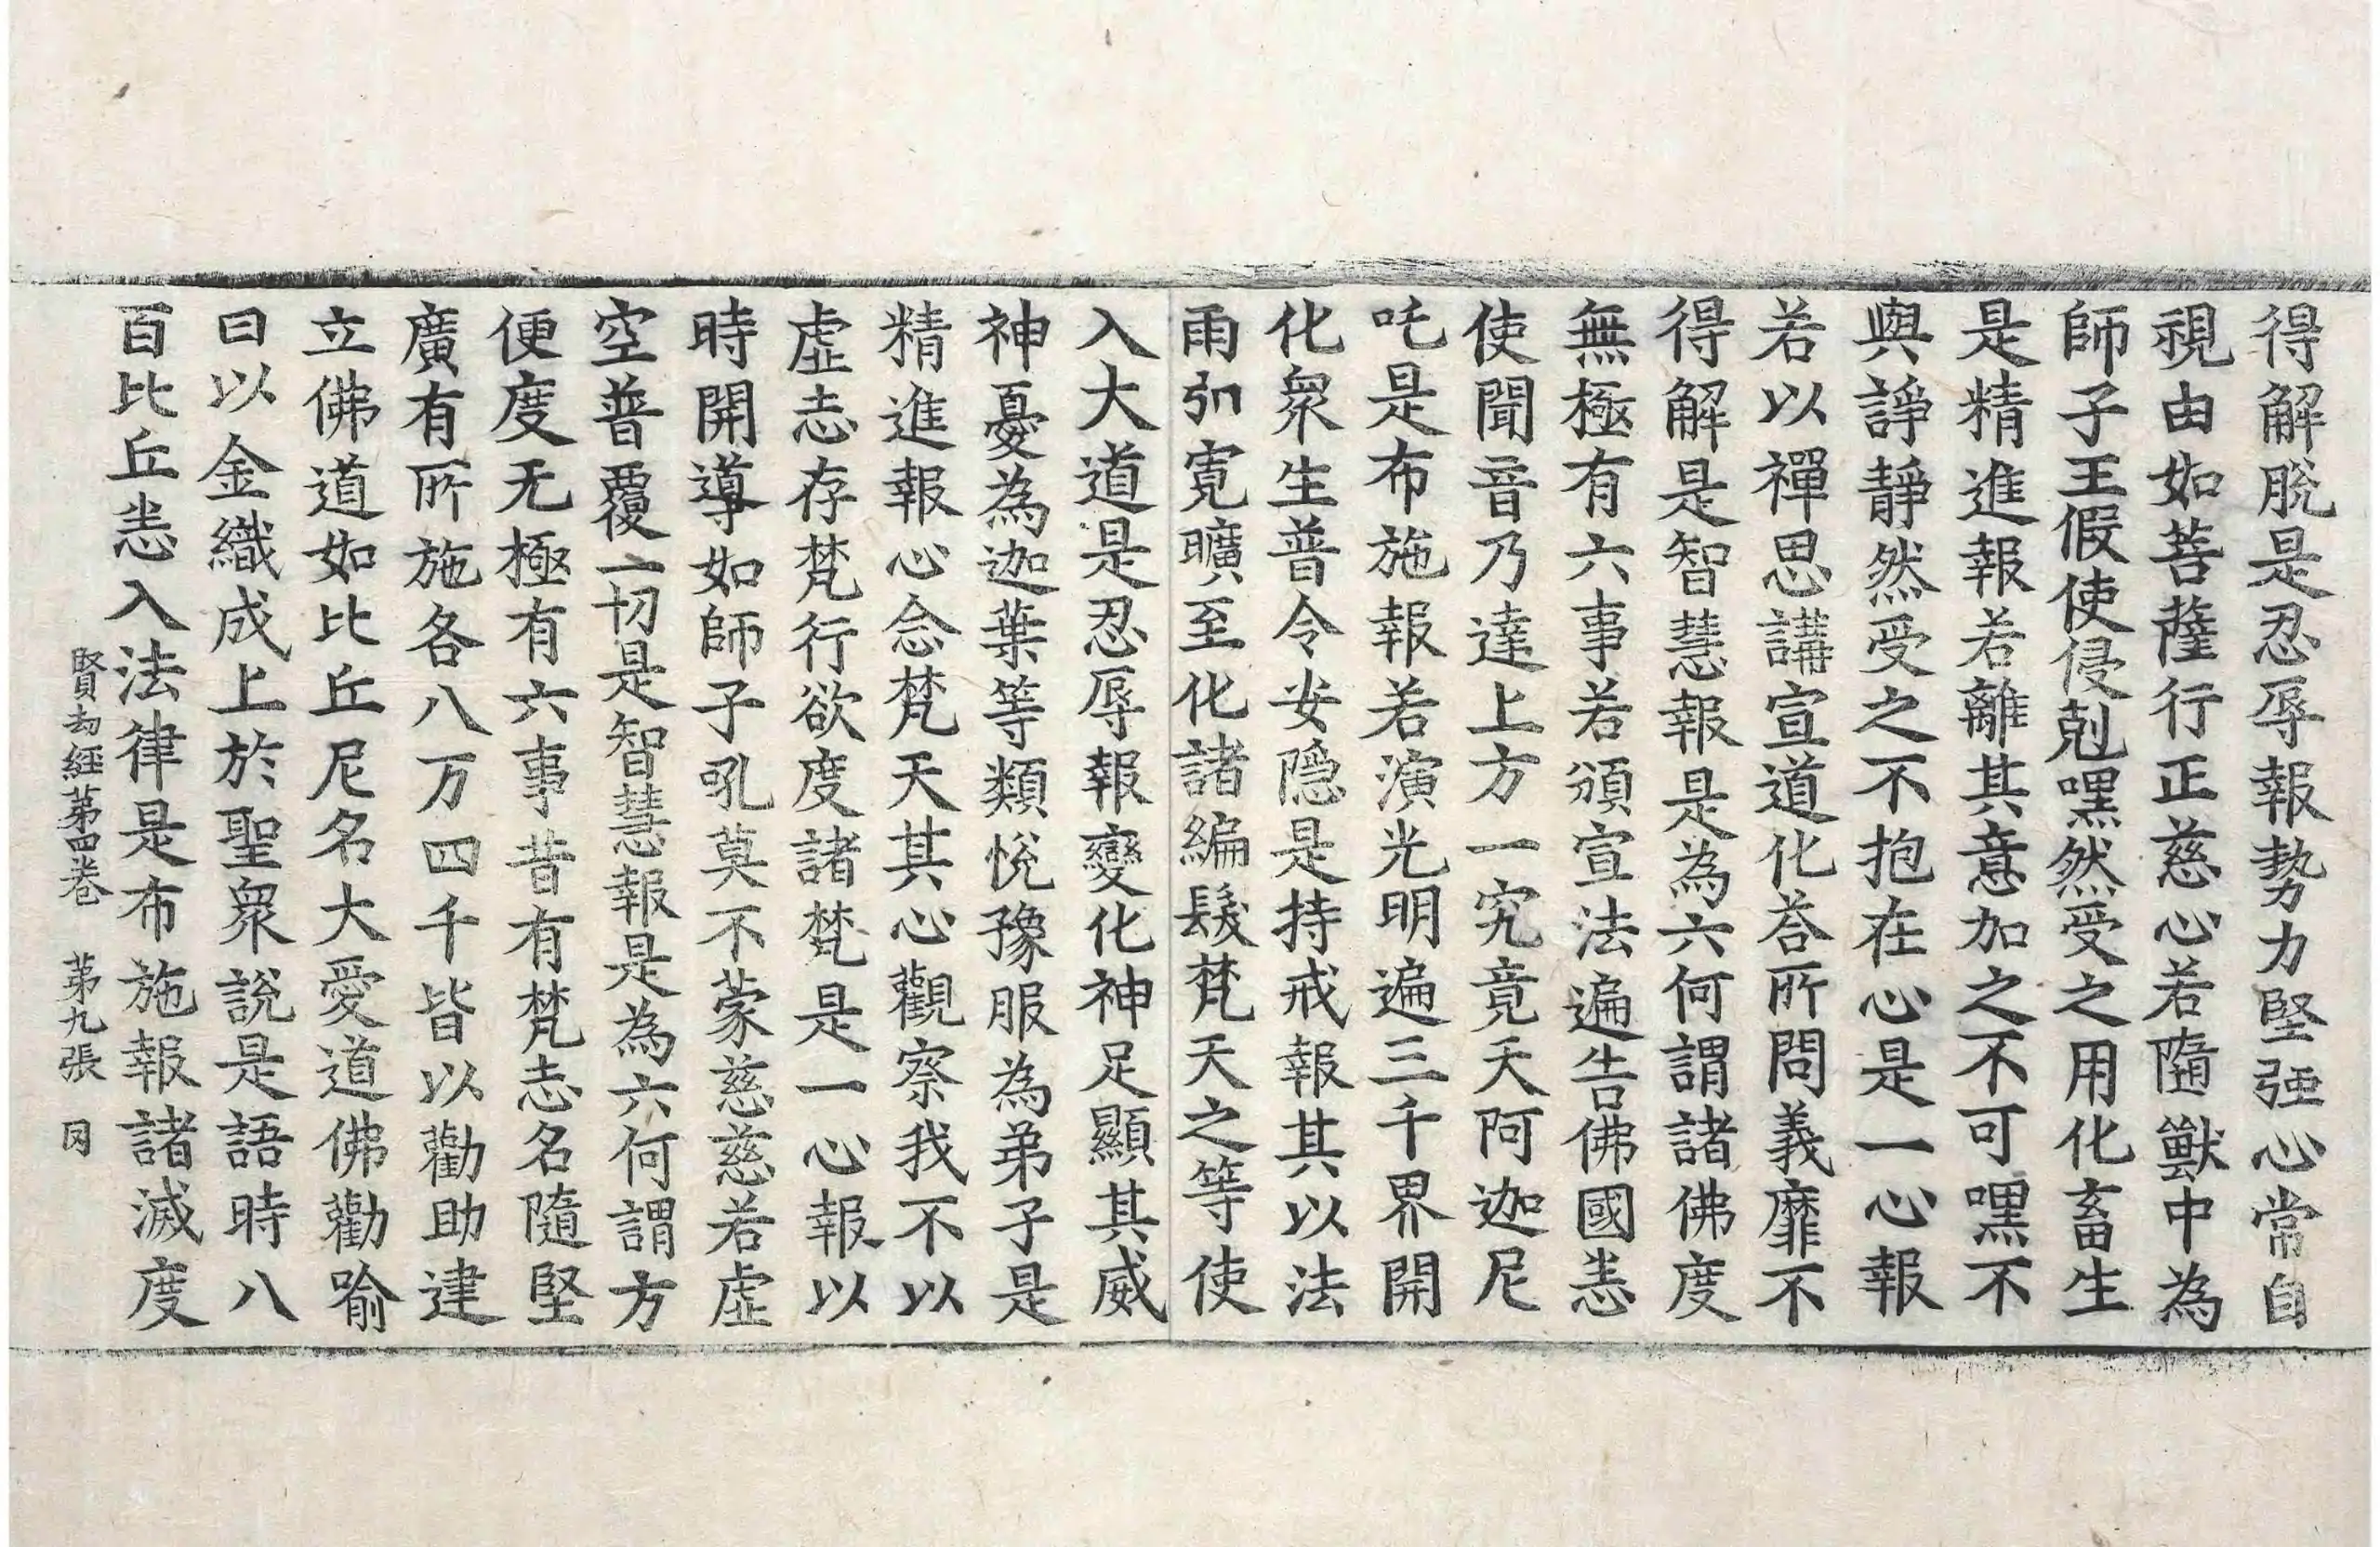 得解脫是忍辱報勢力堅强心常自
視由如菩薩行正慈心若隨獸中為
師子王假使侵剋嘿然受之用化畜生
是精進報若離其意加之不可嘿不
與諍靜然受之不抱在心是一心報
若以禪思講宣道化荅所問義靡不
得解是智慧報是為六何謂諸佛度
無極有六事若頒宣法遍告佛國恚
使聞音乃達上方一究竟天阿迦尼
吒是布施報若演光明遍三千界開
化衆生普令安隐是持戒報其以法
雨引寬曠至化諸編髮梵天之等使
入大道是忍辱報變化神足顯其威
神憂為迦葉等類悅豫服為弟子是
精進報心念梵天其心觀察我不以
虛志存梵行欲度諸梵是一心報以
時開導如師子吼莫不蒙慈慈若虛
空普覆一切是智慧報是為六何謂方
便度无極有六事昔有梵志名隨堅
廣有所施各八万四千皆以勸助建
立佛道如比丘尼名大愛道佛勸喻
曰以金織成上於聖衆說是語時八
百比丘恚入法律是布施報諸滅度
賢劫經第四卷 第九張 冈